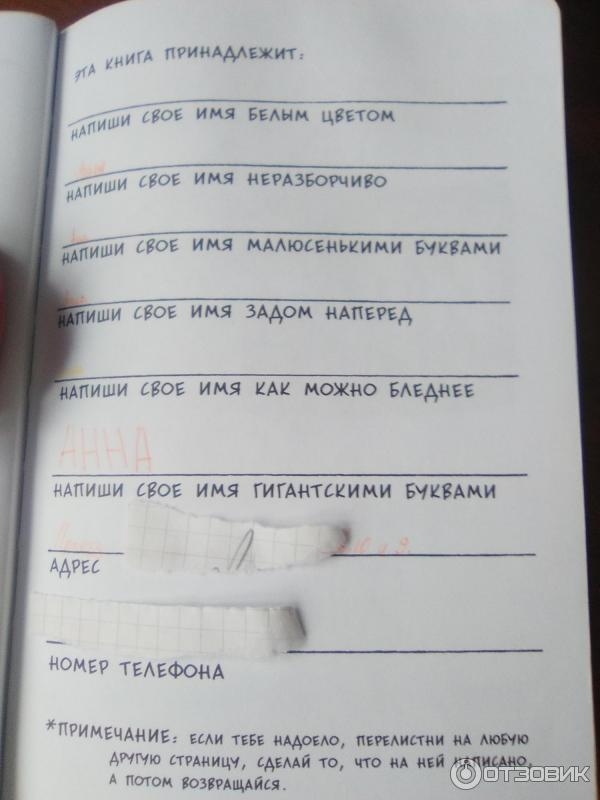 ЭТА КНИГА ПРИНАДЛЕЖИТ:
НАПИШИ СВОЕ ИМЯ БЕЛЫМ ЦВЕТОМ
НАПИШИ СВОЕ ИМЯ НЕРАЗБОРЧИВО
НАПИШИ СВОЕ ИМЯ МАЛЮСЕНЬКИМИ БУКВАМИ
НАПИШИ СВОЕ ИМЯ ЗАДОМ НАПЕРЕД
НАПИШИ СВОЕ ИМЯ КАК МОЖНО БЛЕДНЕЕ
АННА
НАПИШИ СВОЕ ИМЯ ГИГАНТСКИМИ БУКВАМИ
АДРЕС
НОМЕР ТЕЛЕФОНА
*ПРИМЕЧАНИЕ: ЕСЛИ ТЕБЕ НАДОЕЛО, ПЕРЕЛИСТНИ НА ЛЮБУЮ
ДРУГУЮ СТРАНИЦУ, СДЕЛАЙ ТО, ЧТО НА НЕЙ НАПИСАНО,
А ПОТОМ ВОЗВРАЩАЙСЯ.
ОТЗОВИК